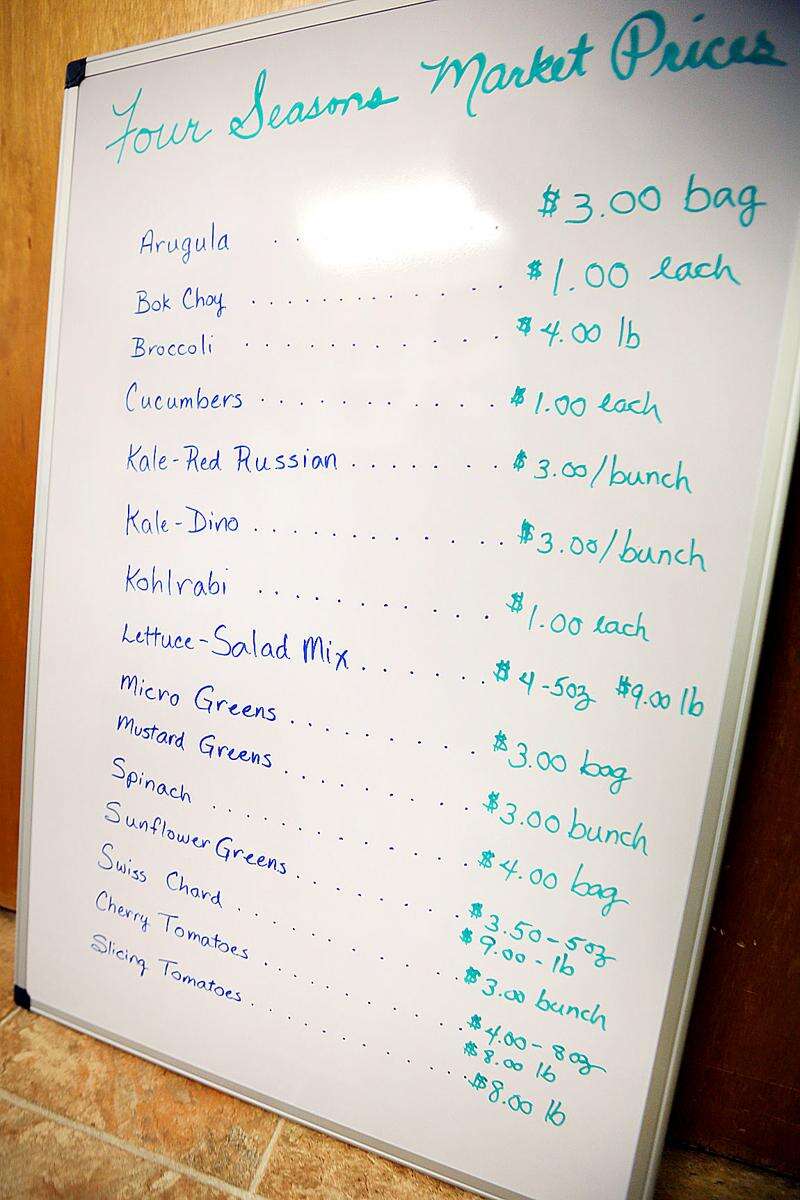 Four Seasons Market Prices
Arugula . . . $3.00 bag
Bok Choy . . . . . . . . . . . . $1.00 each
Broccoli . . . . . . . . . . . $4.00 lb
Cucumbers . . . . . . . . . . . $1.00 each
Kale-Red Russian . . . . . . . $3.00/bunch
Kale-Dino . . . . . . . . . . . . $3.00/bunch
Kohlrabi . . . . . . . . . . . $1.00 each
Lettuce-Salad Mix . . . . . . $4-5oz $9.00 lb
Micro Greens . . . . . . . . . $3.00 bag
Mustard Greens . . . . . . . . . $3.00 bunch
Spinach . . . . . . . . . . . . $4.00 bag
Sunflower Greens . . . . . . . . $3.50-5oz
$9.00-lb
Swiss Chard . . . . . . . . . . $3.00 bunch
Cherry Tomatoes . . . . . . . . . $4.00-8oz
$8.00 lb
Slicing Tomatoes . . . . . . . . . . $8.00 lb